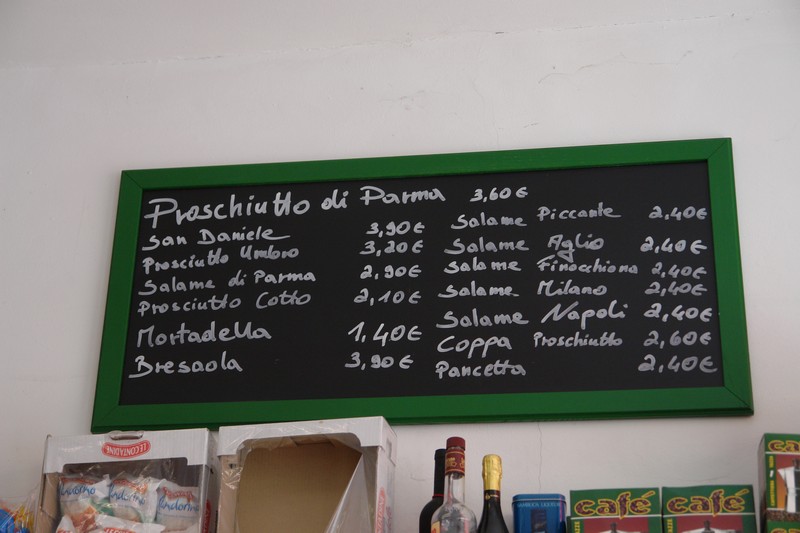 Proschiutto di Parma 3,60€
San Daniele 3,90€
Prosciutto Umbro 3,20€
Salame di Parma 2,90€
Prosciutto Cotto 2,10€
Mortadella 1,40€
Bresaola 3,90€
Salame Piccante 2,40€
Salame Aglio 2,40€
Salame Finocchiona 2,40€
Salame Milano 2,40€
Salame Napoli 2,40€
Coppa Proschiutto 2,60€
Pancetta 2,40€
LE CONTADINE
café
café